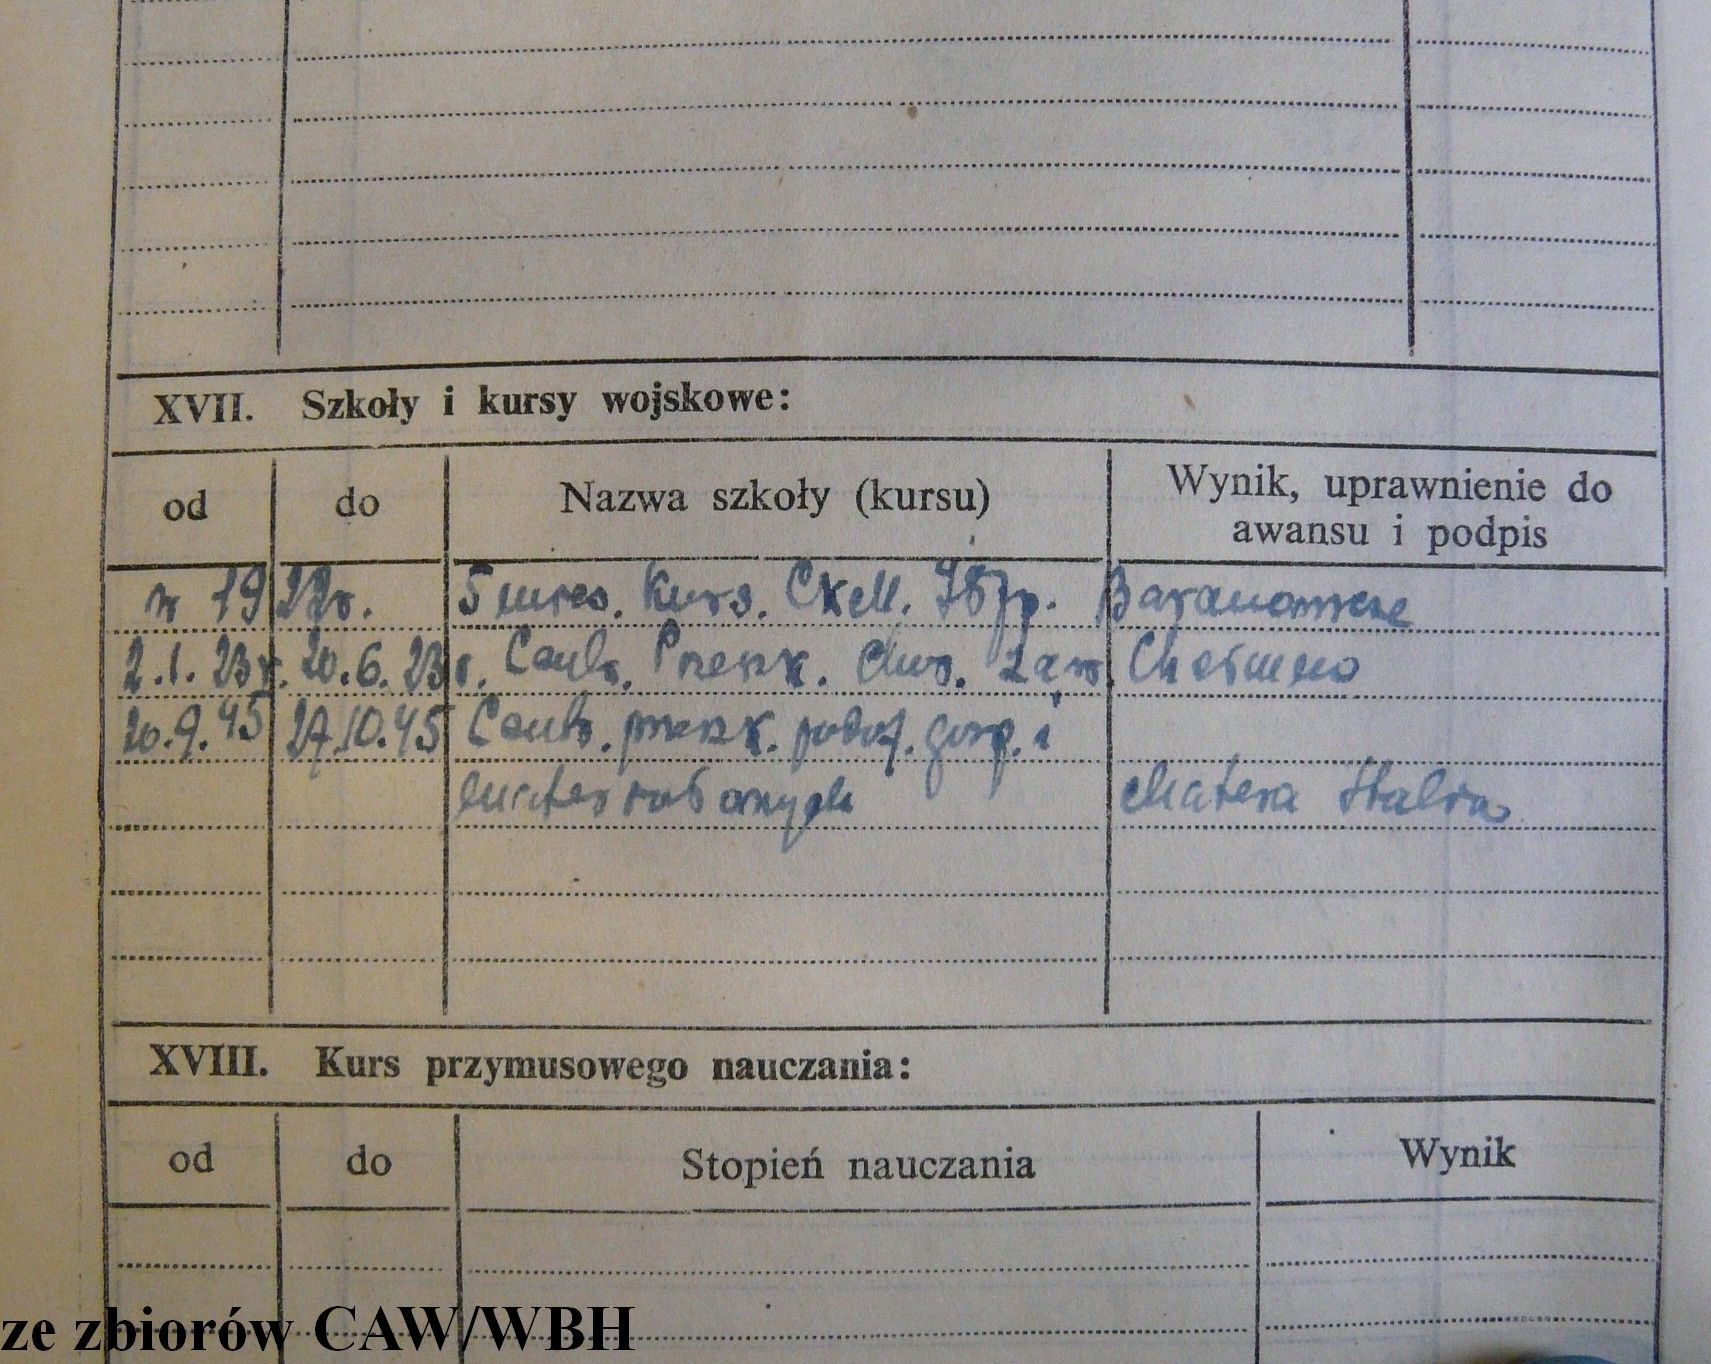 XVII. Szkoły i kursy wojskowe:
od do Nazwa szkoły (kursu) Wynik, uprawnienie do awansu i podpis
w 1922r. 5 mies. Kurs. CKM. 78pp. Baranowicze
2.1.23r. 20.6.23r. Centr. Przeszk. Chor. Zaw. Chełmno
20.9.45 27.10.45 Centr. przeszk. podof. gosp. i
Matera Stalra
XVIII. Kurs przymusowego nauczania:
od do Stopień nauczania Wynik
ze zbiorów CAW/WBH